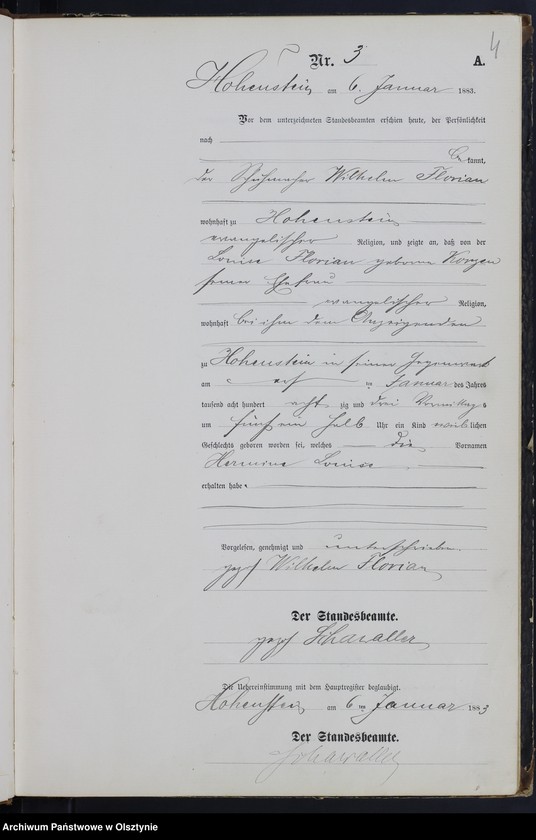 4
Nr. 3
A.
Hohenstein am 6. Januar 1883.
Vor dem unterzeichneten Standesbeamten erschien heute, der Persönlichkeit
nach
kannt,
der Schuhmacher Wilhelm Florian
wohnhaft zu Hohenstein
evangelischer Religion, und zeigte an, daß von der
Louise Florian geborene
seiner Ehefrau
evangelischer Religion,
wohnhaft bei ihm dem Anzeigenden
zu Hohenstein in seiner Gegenwart
am ten Januar des Jahres
tausend acht hundert acht zig und drei Vormittags
um fünf ein halb Uhr ein Kind weiblichen
Geschlechts geboren worden sei, welches die Vornamen
Hermine Louise
erhalten habe.
Vorgelesen, genehmigt und unterschrieben.
gez. Wilhelm Florian
Der Standesbeamte.
gez. Schawaller
Die Uebereinstimmung mit dem Hauptregister beglaubigt.
Hohenstein am 6 ten Januar 1883
Der Standesbeamte.
Schawaller
Archiwum Państwowe w Olsztynie